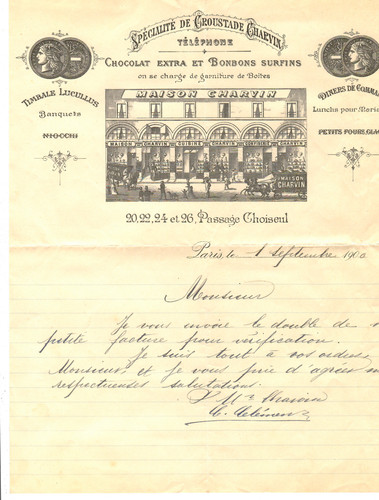 SPÉCIALITÉ DE CROUSTADE CHARVIN
TÉLÉPHONE
CHOCOLAT EXTRA ET BONBONS SURFINS
on se charge de garniture de Boîtes
TIMBALE LUCULLUS
Banquets
NIOCCHI
DINERS DE COMMA
Lunchs pour Maria
PETITS FOURS, GLAC
MAISON CHARVIN
MAISON CHARVIN
20, 22, 24 et 26, Passage Choiseul
Paris, le 1 Septembre 1900
Monsieur
Je vous envoie le double de
petite facture pour vérification.
Je suis tout à vos ordres
Monsieur et je vous prie d'agréer m
respectueuses salutations.
Charvin
Clément